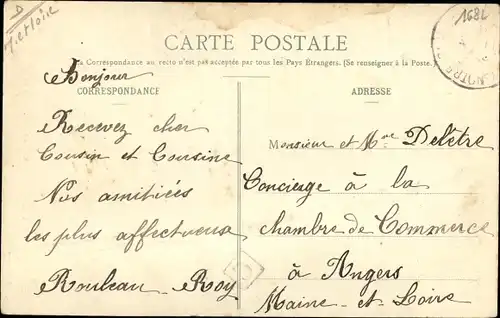 D
M et Loire
1682
CARTE POSTALE
La Correspondance au recto n'est pas acceptée par tous les Pays Étrangers. (Se renseigner à la Poste.)
Bonjour
CORRESPONDANCE
Recevez cher
Cousin et Cousine
Nos amitiées
les plus affectueux
Rouleau - Roy
ADRESSE
Monsieur et Mme Delêtre
Concierge à la
chambre de Commerce
à Angers
Maine-et-Loire